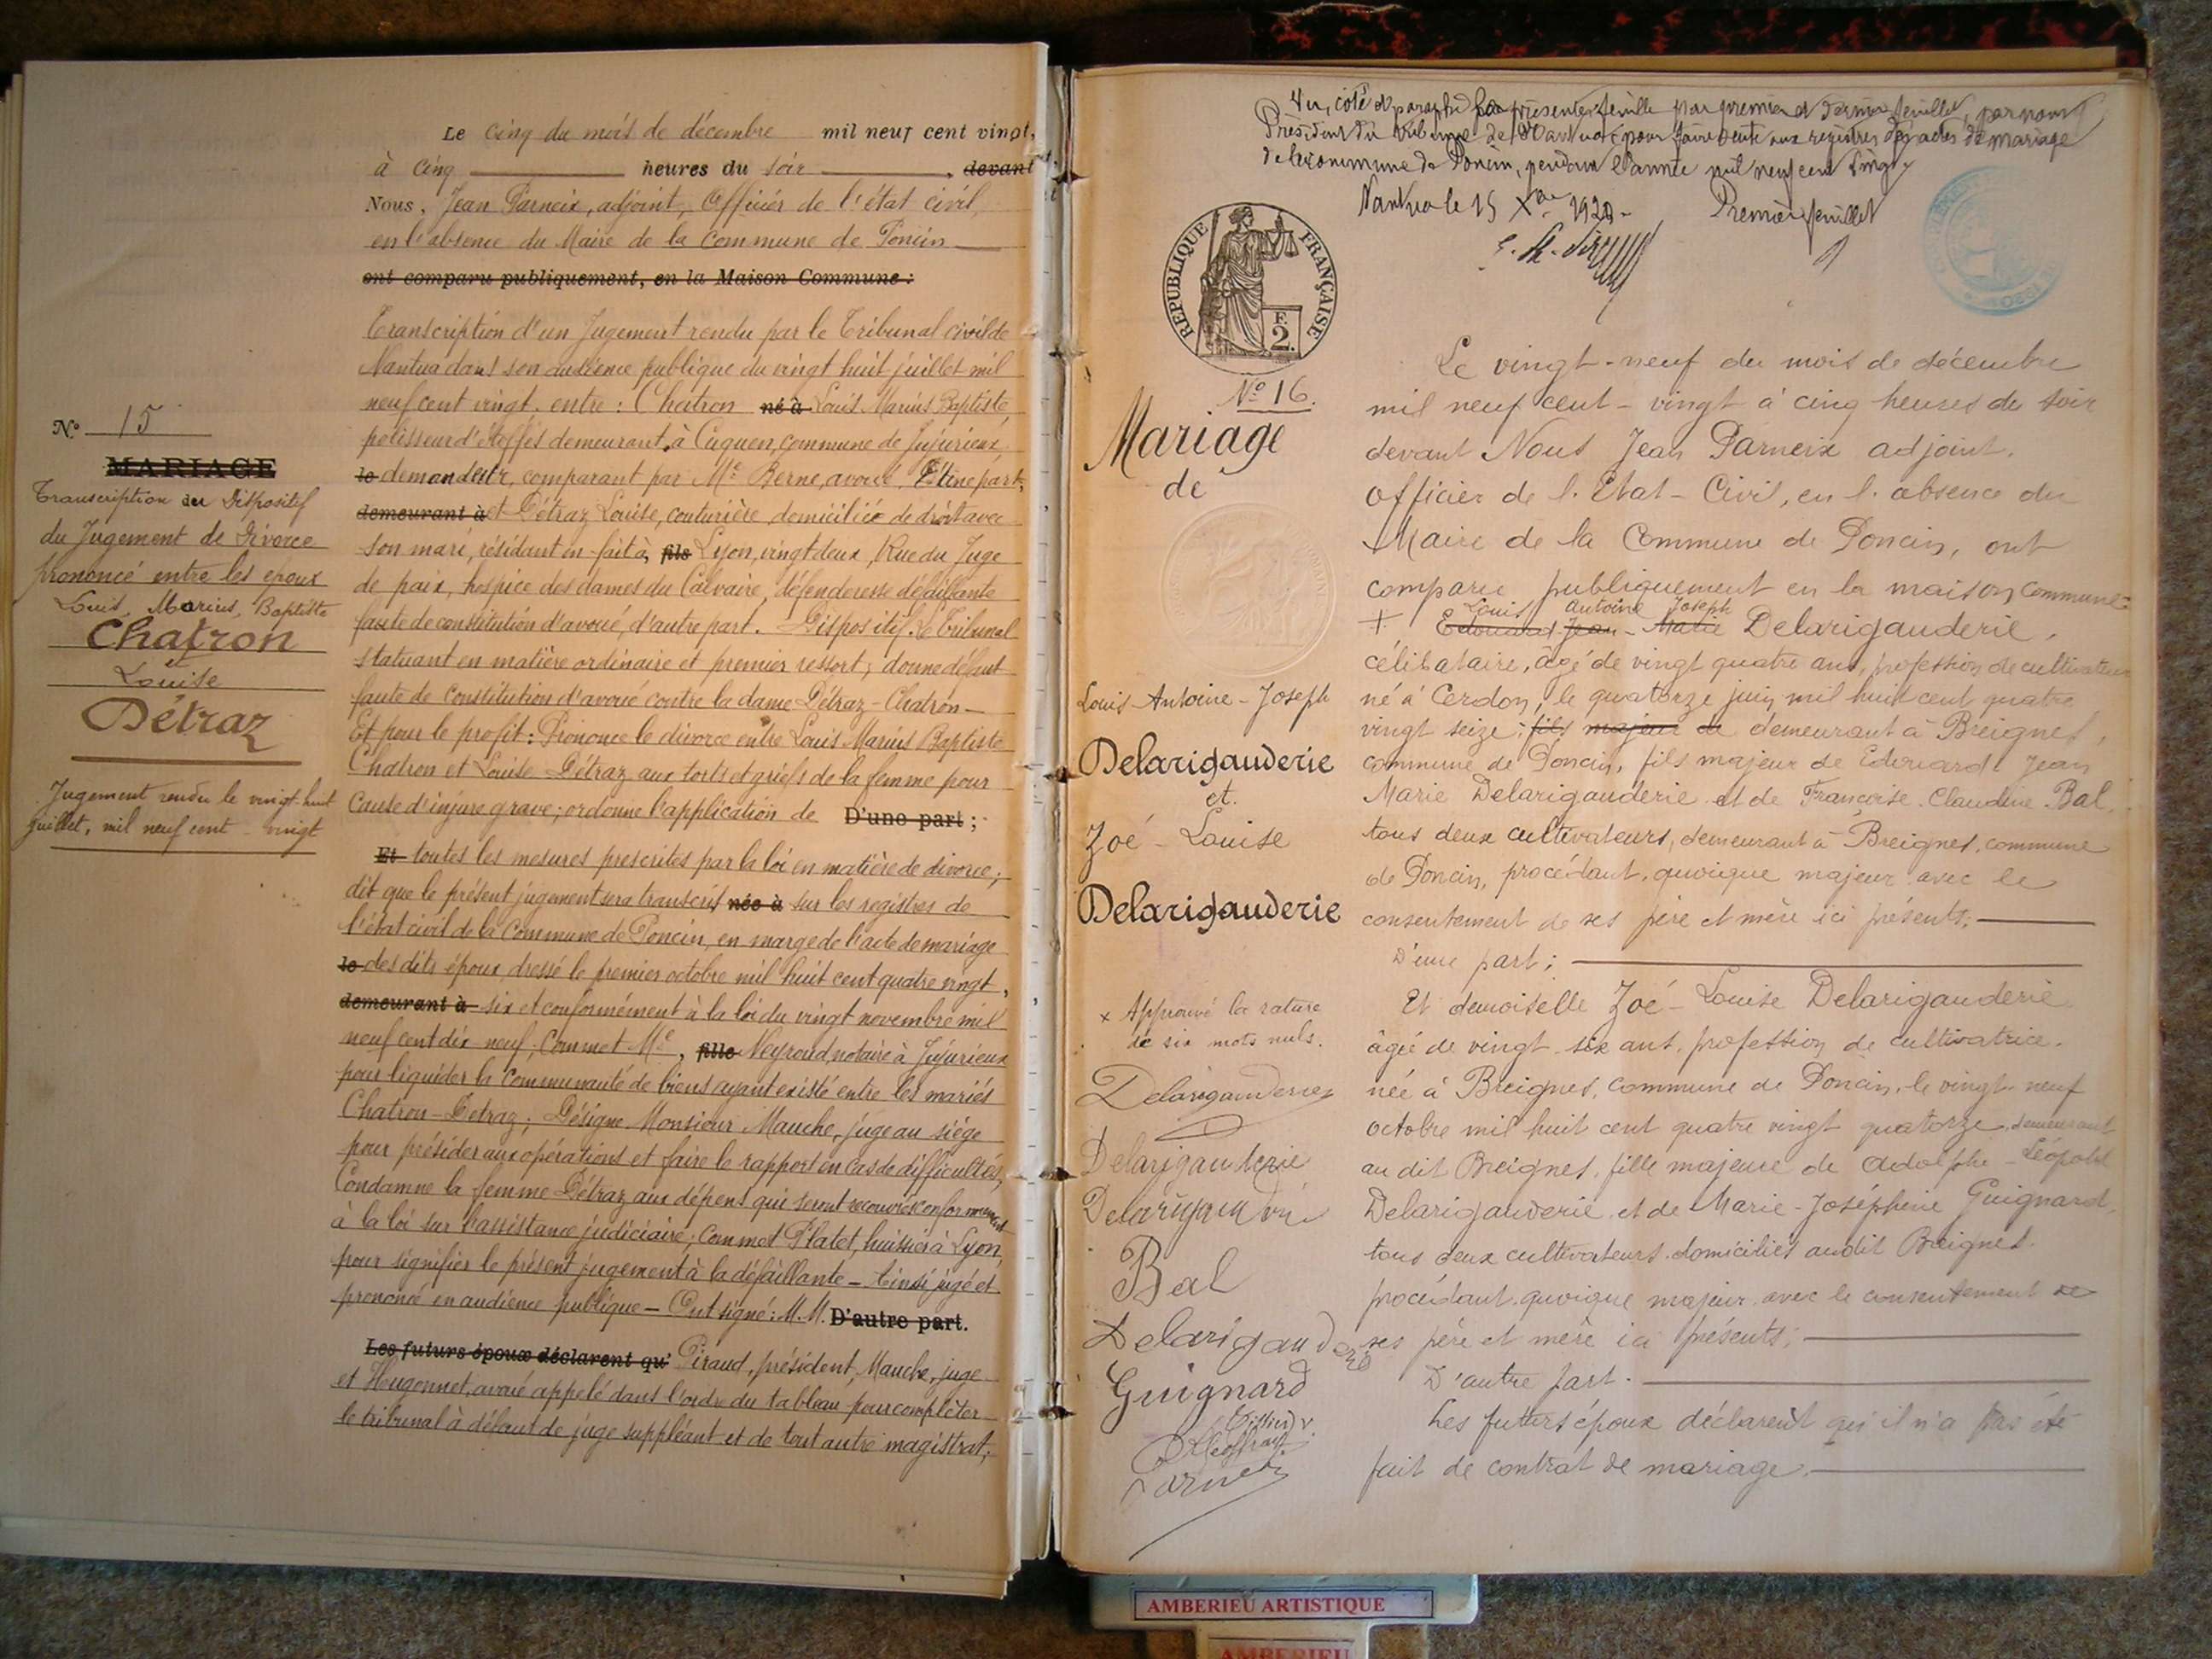 Le cinq du mois de décembre mil neuf cent vingt,
à cinq heures du soir, devant
Nous, Jean Parneix, adjoint, Officier de l'état civil,
en l'absence du Maire de la commune de Poncin
ont comparu publiquement, en la Maison Commune :
Transcription d'un Jugement rendu par le Tribunal civil de
Nantua dans son audience publique du vingt huit juillet mil
neuf cent vingt, entre : Chatron né à Louis Marius Baptiste,
polisseur d'étoffes demeurant à Cuquen, commune de Jujurieux,
le demandeur, comparant par Me Berne, avoué, D'une part,
demeurant à et Détraz Louise, couturière domiciliée de droit avec
son mari, résidant en fait à, fils Lyon, vingt deux, Rue du Juge
de paix, hospice des dames du Calvaire, défenderesse défaillante
faute de constitution d'avoué, d'autre part. Dispositif. Le Tribunal
statuant en matière ordinaire et premier ressort; donne défaut
faute de constitution d'avoué contre la dame Détraz-Chatron -
Et pour le profit : Prononce le divorce entre Louis Marius Baptiste
Chatron et Louise Détraz aux torts et griefs de la femme pour
cause d'injure grave; ordonne l'application de D'une part ;
Et toutes les mesures prescrites par la loi en matière de divorce;
dit que le présent jugement sera transcrit née à sur les registres de
l'état civil de la Commune de Poncin, en marge de l'acte de mariage
le des dits époux dressé le premier octobre mil huit cent quatre vingt,
demeurant à six et conformément à la loi du vingt novembre mil
neuf cent dix neuf; Commet Me, fille Neyroud, notaire à Jujurieux
pour liquider la communauté de biens ayant existé entre les mariés
Chatron-Détraz; Désigne Monsieur Mauche, juge au siège
pour présider aux opérations et faire le rapport en cas de difficultés;
Condamne la femme Détraz aux dépens qui seront recouvrés conformément
à la loi sur l'assistance judiciaire; commet Platet, huissier à Lyon,
pour signifier le présent jugement à la défaillante - Ainsi jugé et
prononcé en audience publique - Ont signé : M.M. D'autre part.
Les futurs époux déclarent qu' Piraud, président, Mauche, juge
et Hugonnet, avoué appelé dans l'ordre du tableau pour compléter
le tribunal à défaut de juge suppléant et de tout autre magistrat;
No 15
MARIAGE
Transcription du Dispositif
du Jugement de Divorce
prononcé entre les époux
Louis, Marius, Baptiste
Chatron
et
Louise
Détraz
Jugement rendu le vingt-huit
juillet, mil neuf cent vingt
Vu, coté et paraphé la présente feuille par premier et dernier feuillet, par nous
Président du tribunal de Nantua, pour faire suite aux registres des actes de mariage
de la commune de Poncin, pendant l'année mil neuf cent vingt
Nantua le 15 Xbre 1920 - Premier feuillet
RÉPUBLIQUE FRANÇAISE
F.
2.
No 16.
Mariage
de
Louis-Antoine-Joseph
Delarigauderie
et.
Zoé-Louise
Delarigauderie
x Approuvé la rature
de six mots nuls.
Delarigauderie
Delarigauderie
Bal
Delarigauderie
Guignard
Parneix
Le vingt-neuf du mois de décembre
mil neuf cent-vingt à cinq heures du soir
devant Nous Jean Parneix adjoint,
officier de l'Etat-Civil, en l'absence du
Maire de la Commune de Poncin, ont
comparu publiquement en la maison commune :
Louis Antoine Joseph
+ Edouard Jean-Marie Delarigauderie,
célibataire, âgé de vingt quatre ans, profession de cultivateur
né à Cerdon, le quatorze juin mil huit cent quatre
vingt seize; fils majeur de demeurant à Breignes,
commune de Poncin, fils majeur de Edouard Jean
Marie Delarigauderie et de Françoise Claudine Bal,
tous deux cultivateurs, demeurant à Breignes, commune
de Poncin, procédant, quoique majeur avec le
consentement de ses père et mère ici présents;
D'une part;
Et demoiselle Zoé-Louise Delarigauderie
âgée de vingt-six ans, profession de cultivatrice,
née à Breignes, commune de Poncin, le vingt-neuf
octobre mil huit cent quatre vingt quatorze, demeurant
au dit Breignes, fille majeure de Adolphe-Léopold
Delarigauderie et de Marie-Joséphine Guignard,
tous deux cultivateurs domiciliés audit Breignes.
procédant quoique majeur avec le consentement de
ses père et mère ici présents;
D'autre part.
Les futurs époux déclarent qu'il n'a pas été
fait de contrat de mariage.
AMBERIEU ARTISTIQUE
AMBERIEU